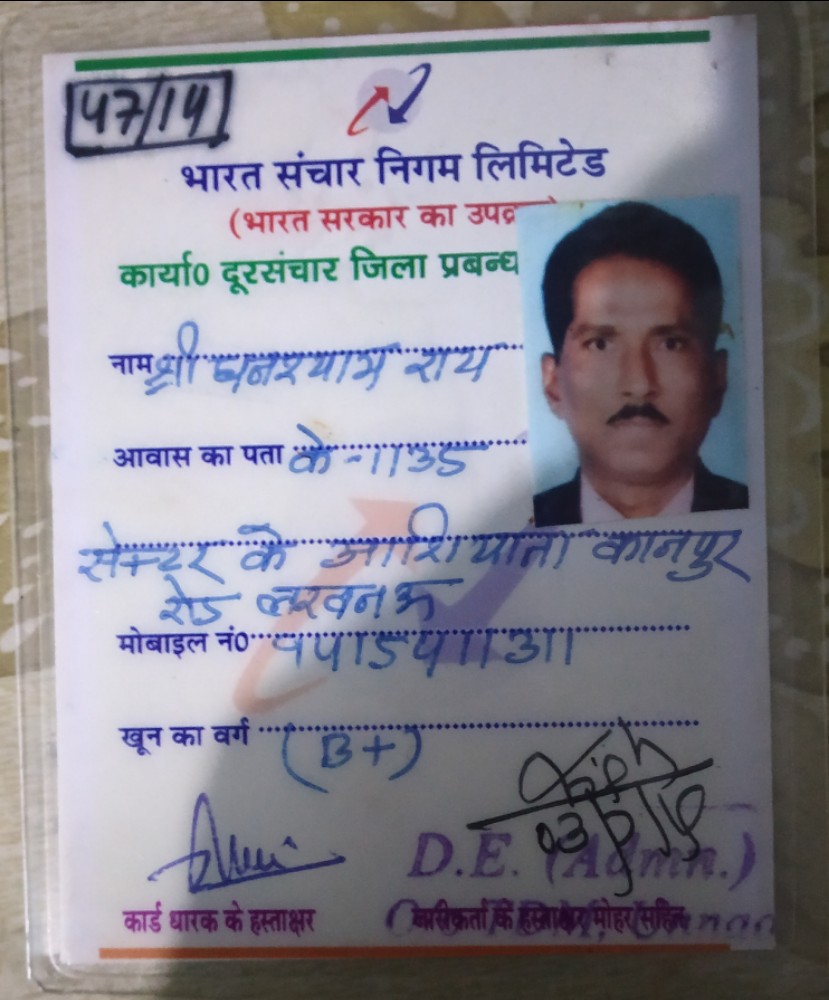 47/14
भारत संचार निगम लिमिटेड
(भारत सरकार का
कार्या0 दूरसंचार जिला प्रबन्ध
नाम श्री घनश्याम राय
आवास का पता के-
सेक्टर के आशियाना कानपुर
रोड लखनऊ
मोबाइल नं0
खून का वर्ग (B+)
D.E. (Admn.)
कार्ड धारक के हस्ताक्षर के हस्ताक्षर मोहर सहित